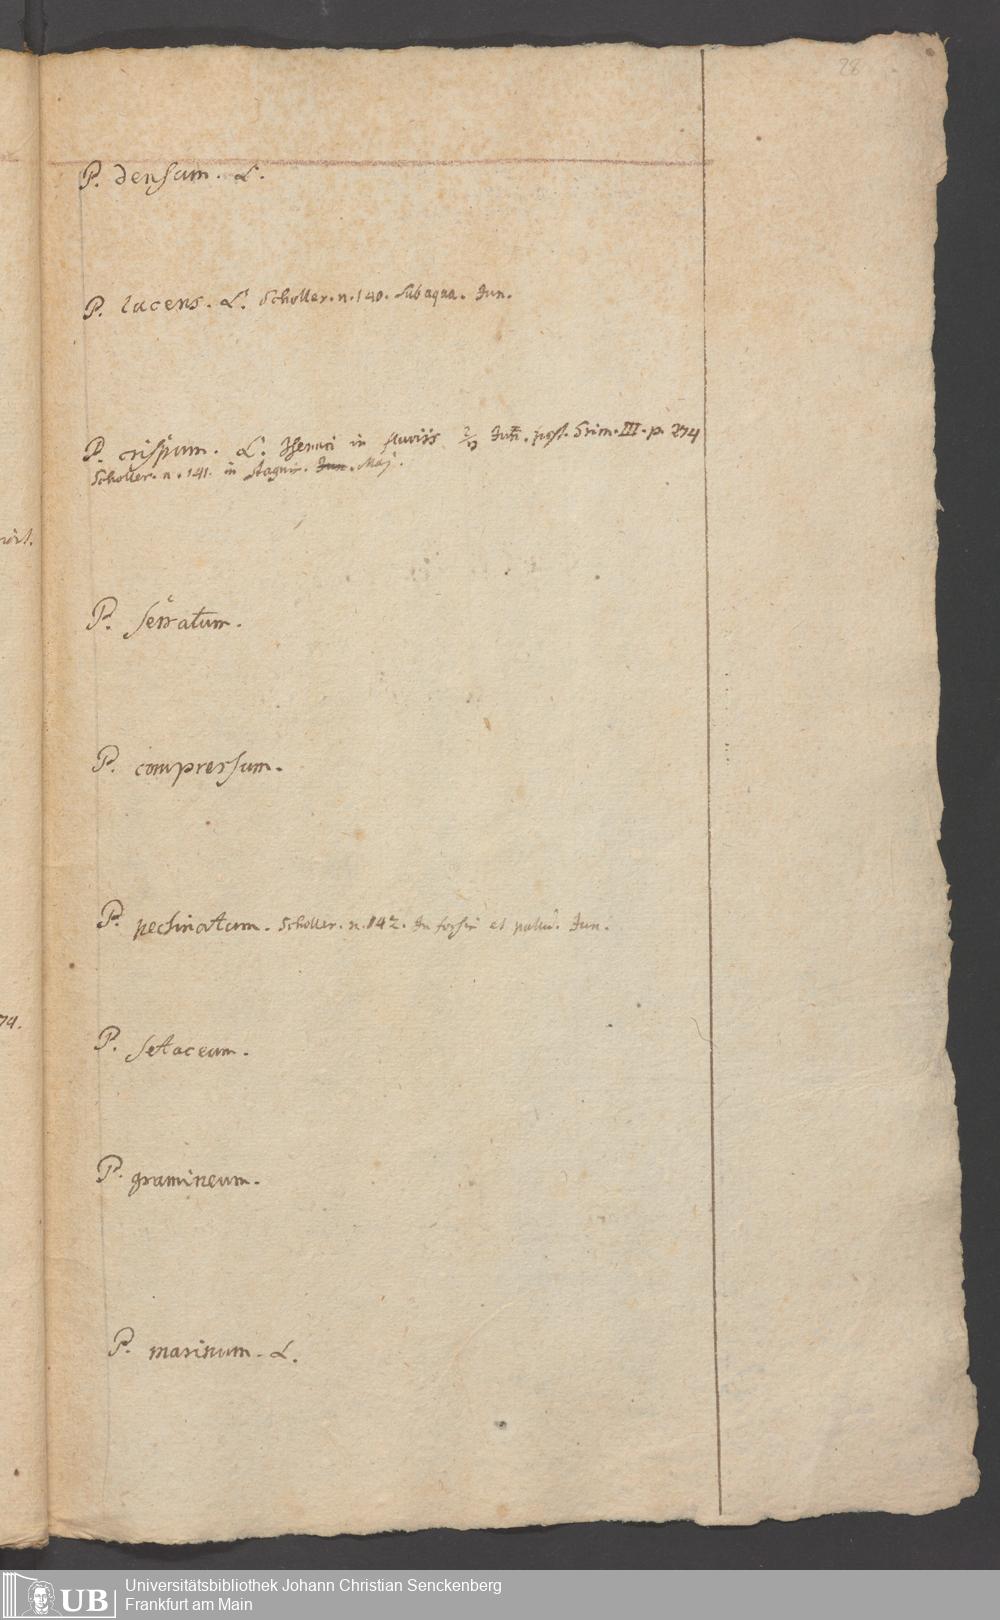 28
P. densum. L.
P. lucens. L. Scholler. n. 140. Sub aqua. Jun.
P. crispum. L. Isenaci in fluviis Grim. III. p. 274
Scholler. n. 141. in stagnis. Jun. Maj.
P. serratum.
P. compressum.
P. pectinatum. Scholler. n. 142. In fossis et palud. Jun.
P. setaceum.
P. gramineum.
P. marinum. L.
74.
UB
Universitätsbibliothek Johann Christian Senckenberg
Frankfurt am Main